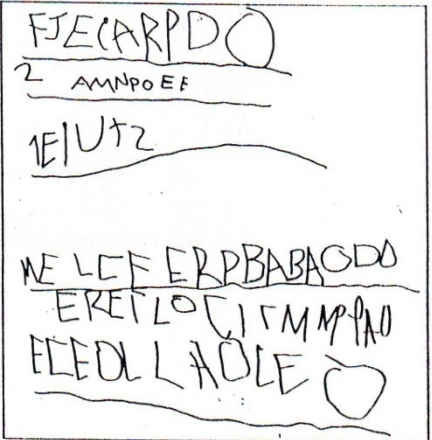 FJECARPDO
2 AMNPOEF
1E1U+2
ME LCF ERPBABAODO
EREFLOCI
ECEOLLAOLE O